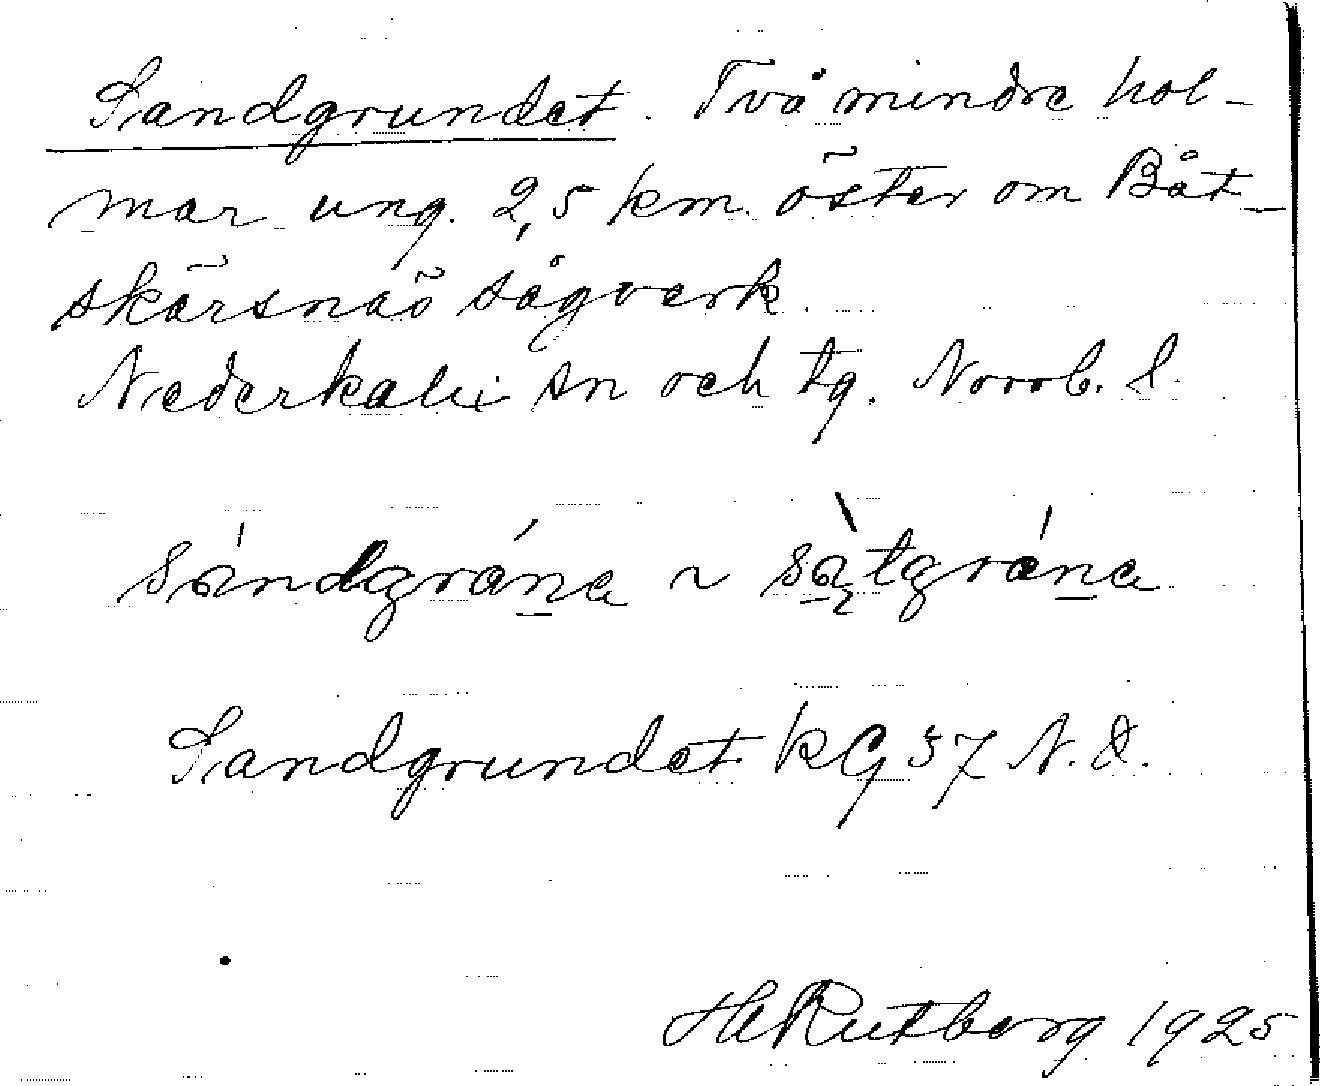 Sandgrundet. Två mindre hol-
mar ung. 2,5 km. öster om Båt-
skärsnäs sågverk.
Nederkalix sn och tg. Norrb. l.
Sandgrundet KG 57 N.O.
H Rutberg 1925